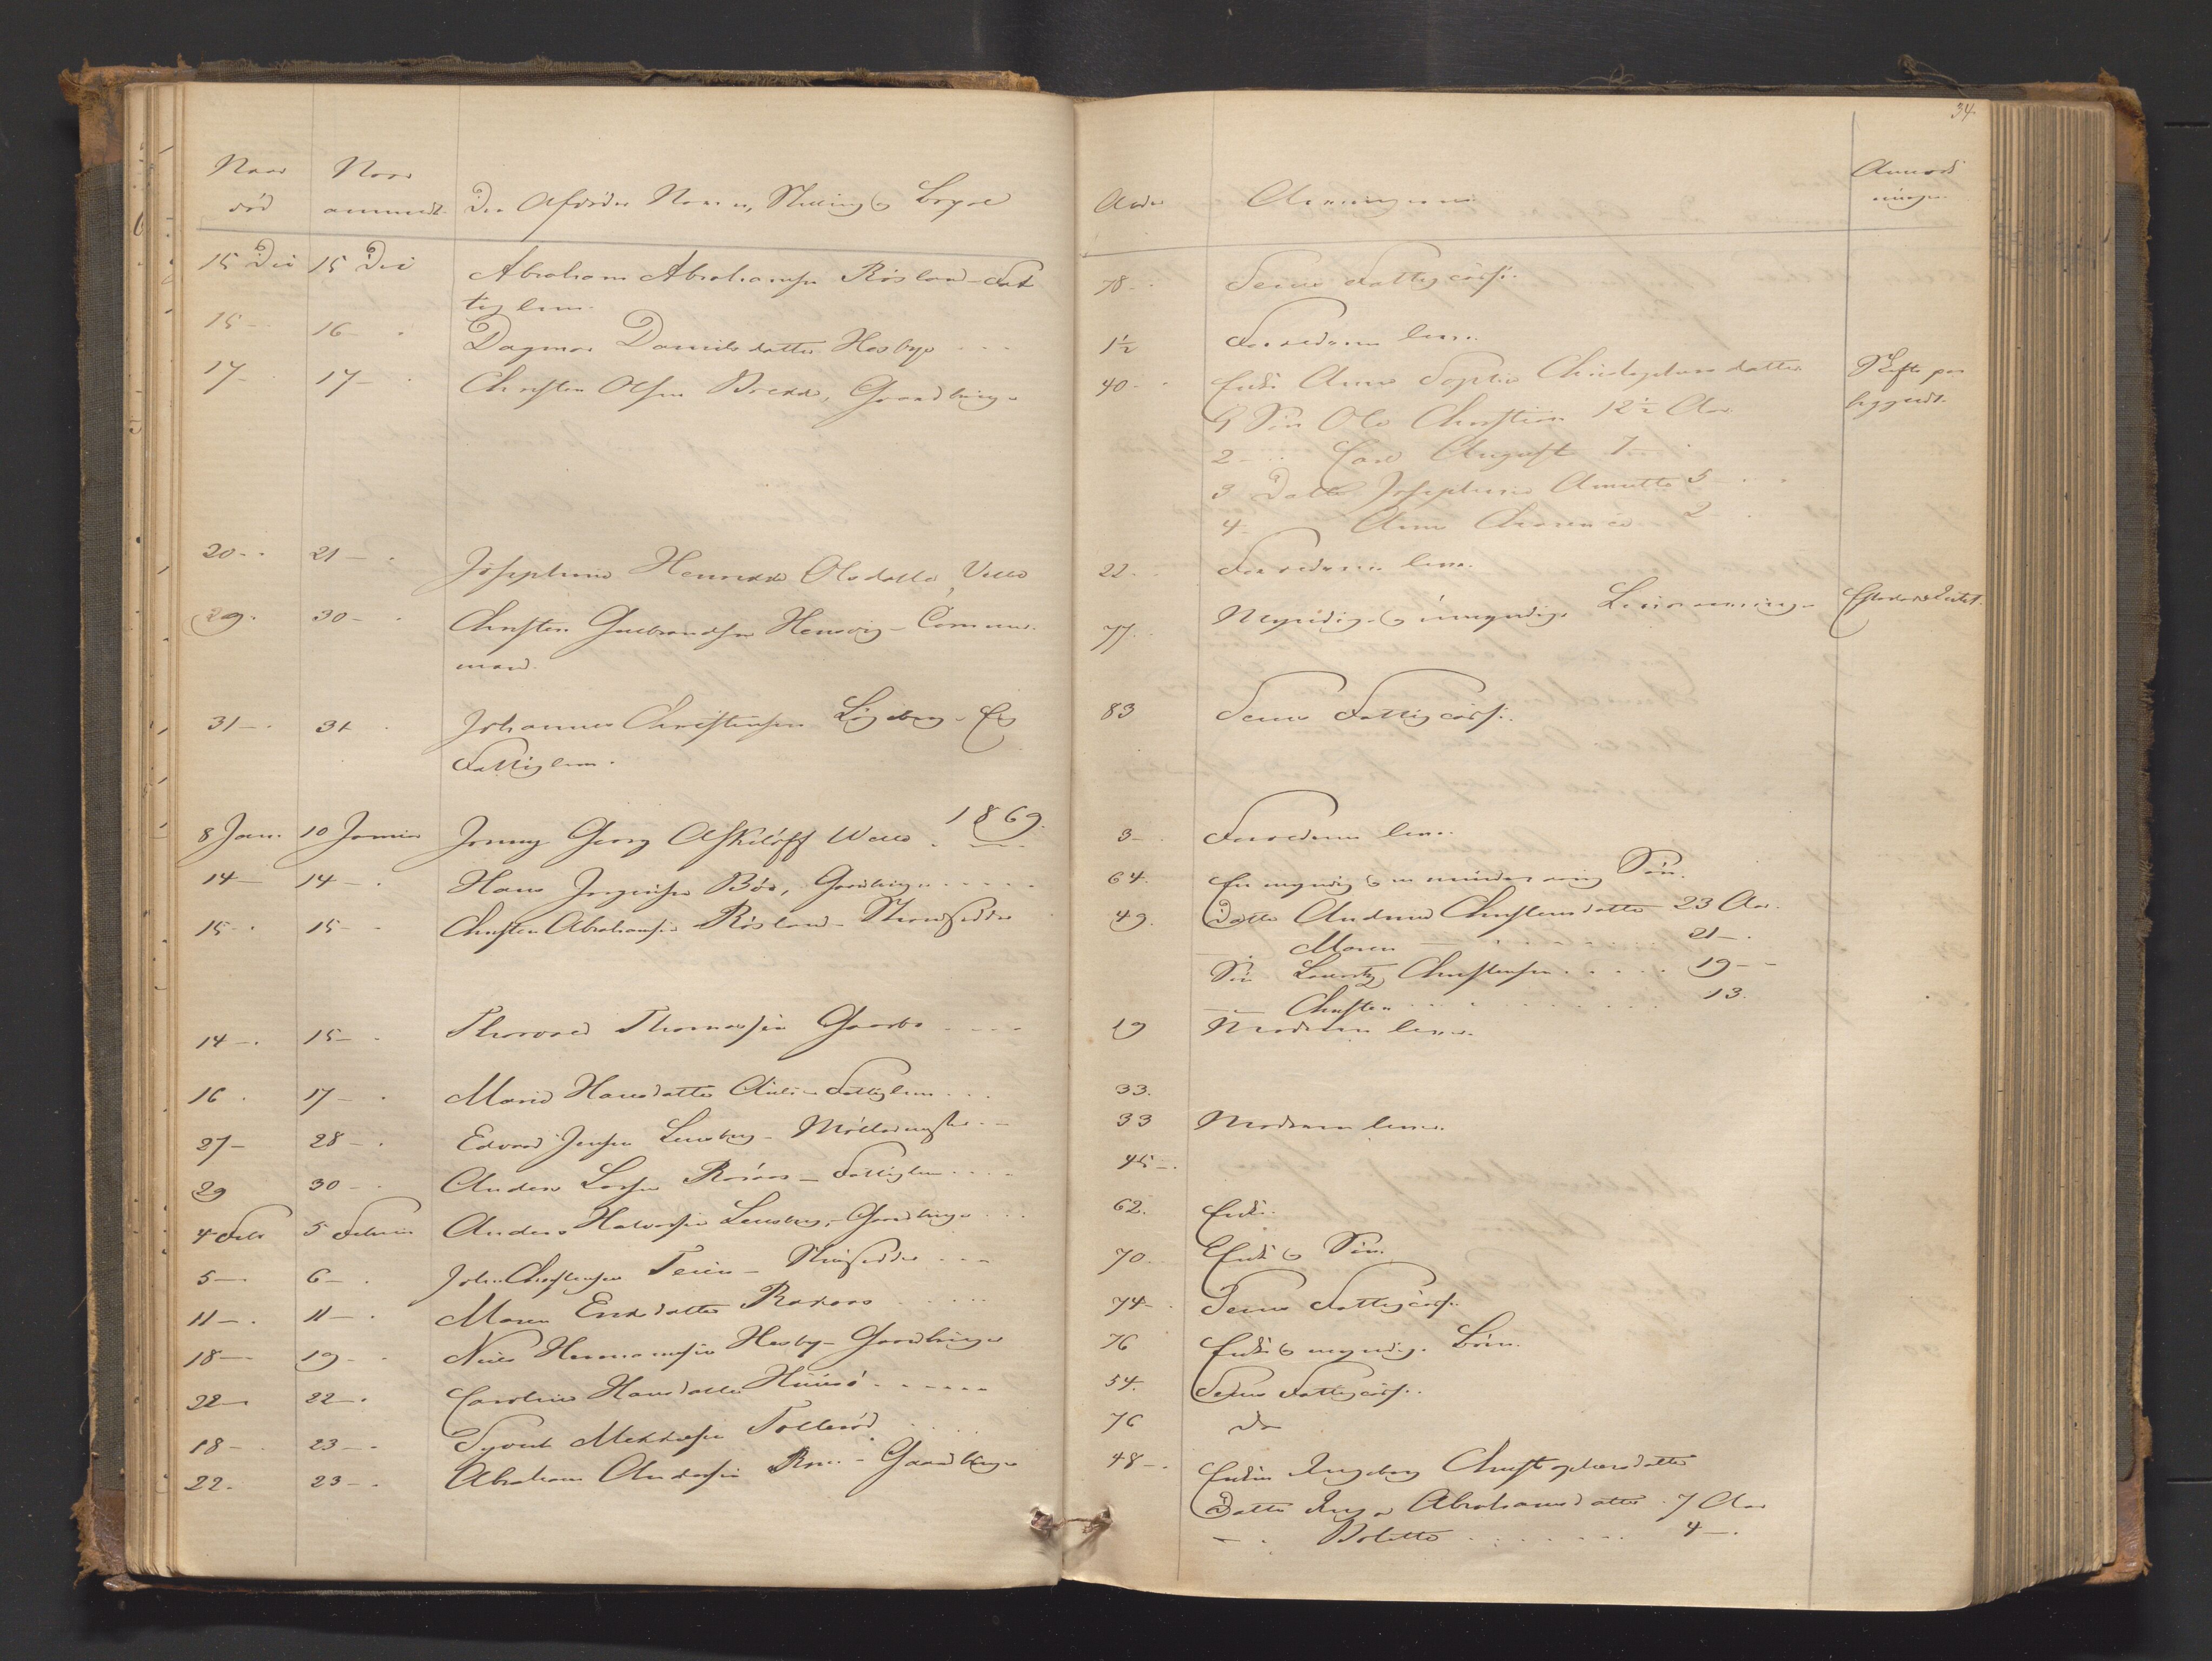 34
Naar Naar Anmærk
død anmeldt Den Afdødes Navn, Stilling og Bopæl Alder Arvingerne ninger
15 Dec 15 Dec Abraham Abrahamsen Røsland - Fat 78 - Sems Fattigcasse.
tiglem.
15 - 16 - Dagmar Danielsdatter Hesbye 1½ Forældrene leve.
17 - 17 - Christen Olsen Brekke, Gaardbruger 40 - Enke Anne Sophie Christophersdatter Skifte paa
1 Søn Ole Christian 12½ Aar begjendt.
2 - Carl August 7 -
3 Datter Josephine Annette 5 -
4 - Anne 2 -
20 - 21 - Josephine Olsdatter Vella 22 - Forældrene leve.
29 - 30 - Christen Gulbrandsen - 77 - Myndige og umyndige Livsarvinger
mand.
31 - 31 Johannes Christensen - 83 Sems Fattigcasse.
Fattiglem.
1869.
8 Jan. 10 Januar Jonny Georg Wello 3 - Forældrene leve.
14 - 14 - Hans Jørgensen Bøe, Gaardbruger 64. En myndig og en mindreaarig Søn.
15 - 15 - Christen Abrahamsen Røsland - Strandsidder 49. Datter Andrine Christensdatter 23 Aar.
Maren 21 -
Søn Lauritz Christensen 19 -
- Christen 13.
14 - 15 - Thorvald Thomassen Gaarbo 19 Moderen lever.
16 - 17 - Marie Hansdatter - Fattiglem 33.
27 - 28 - Edvard Jensen Lensberg - Møllersvend 33 Moderen lever.
29 30 - Anders Larsen - Fattiglem 45 -
4 Feb 5 Februar Anders Halvorsen Lensberg, Gaardbruger 62. Enke.
5 - 6 - John Christensen Teien - Huusfader 70. Enke og Søn.
11 - 11 - Maren Eriksdatter Raraas 74 - Sems Fattigcasse.
18 - 19 - Niels Hermansen Hesby - Gaardbruger 76 Enke og myndige Børn.
22 - 22 - Caroline Hansdatter Huusø 54. Sems Fattigcasse.
18 - 23 - Syvert Tollerød 76 do
22. 23 - Abraham Andersen - Gaardbruger 48 - Enken Ingeborg Christophersdatter
Datter Inger Abrahamsdatter 7 Aar
- Bolette 4 -.